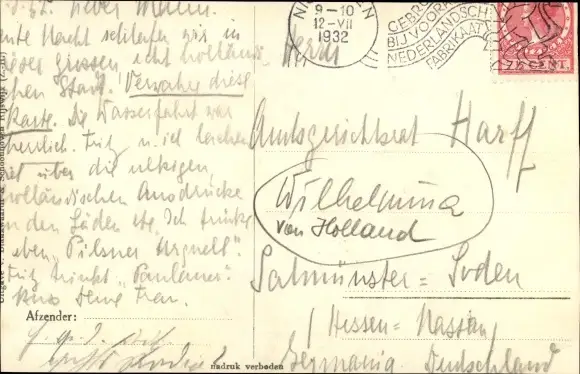 lieber Mann.
Nacht schlafen wir in
grossen, echt holländi-
chen Stadt. Verwahre diese
Karte. Die Wasserfahrt war
herrlich. Fritz u. ich lachen
über die ulkigen
holländischen Ausdrücke
den Läden etc. Ich trinke
eben "Pilsner Urquell".
Fritz trinkt "Paulaner".
Kuss Deine Frau.
Afzender:
nadruk verboden
9-10
12-VII
1932
GEBRU
BIJ VOORK
NEDERLANDSCH
FABRIKAAT
7½ CENT
Herrn
Amtsgerichtsrat Harff
Wilhelmina
von Holland
Salmünster=Soden
(Hessen=Nassau)
Germania Deutschland